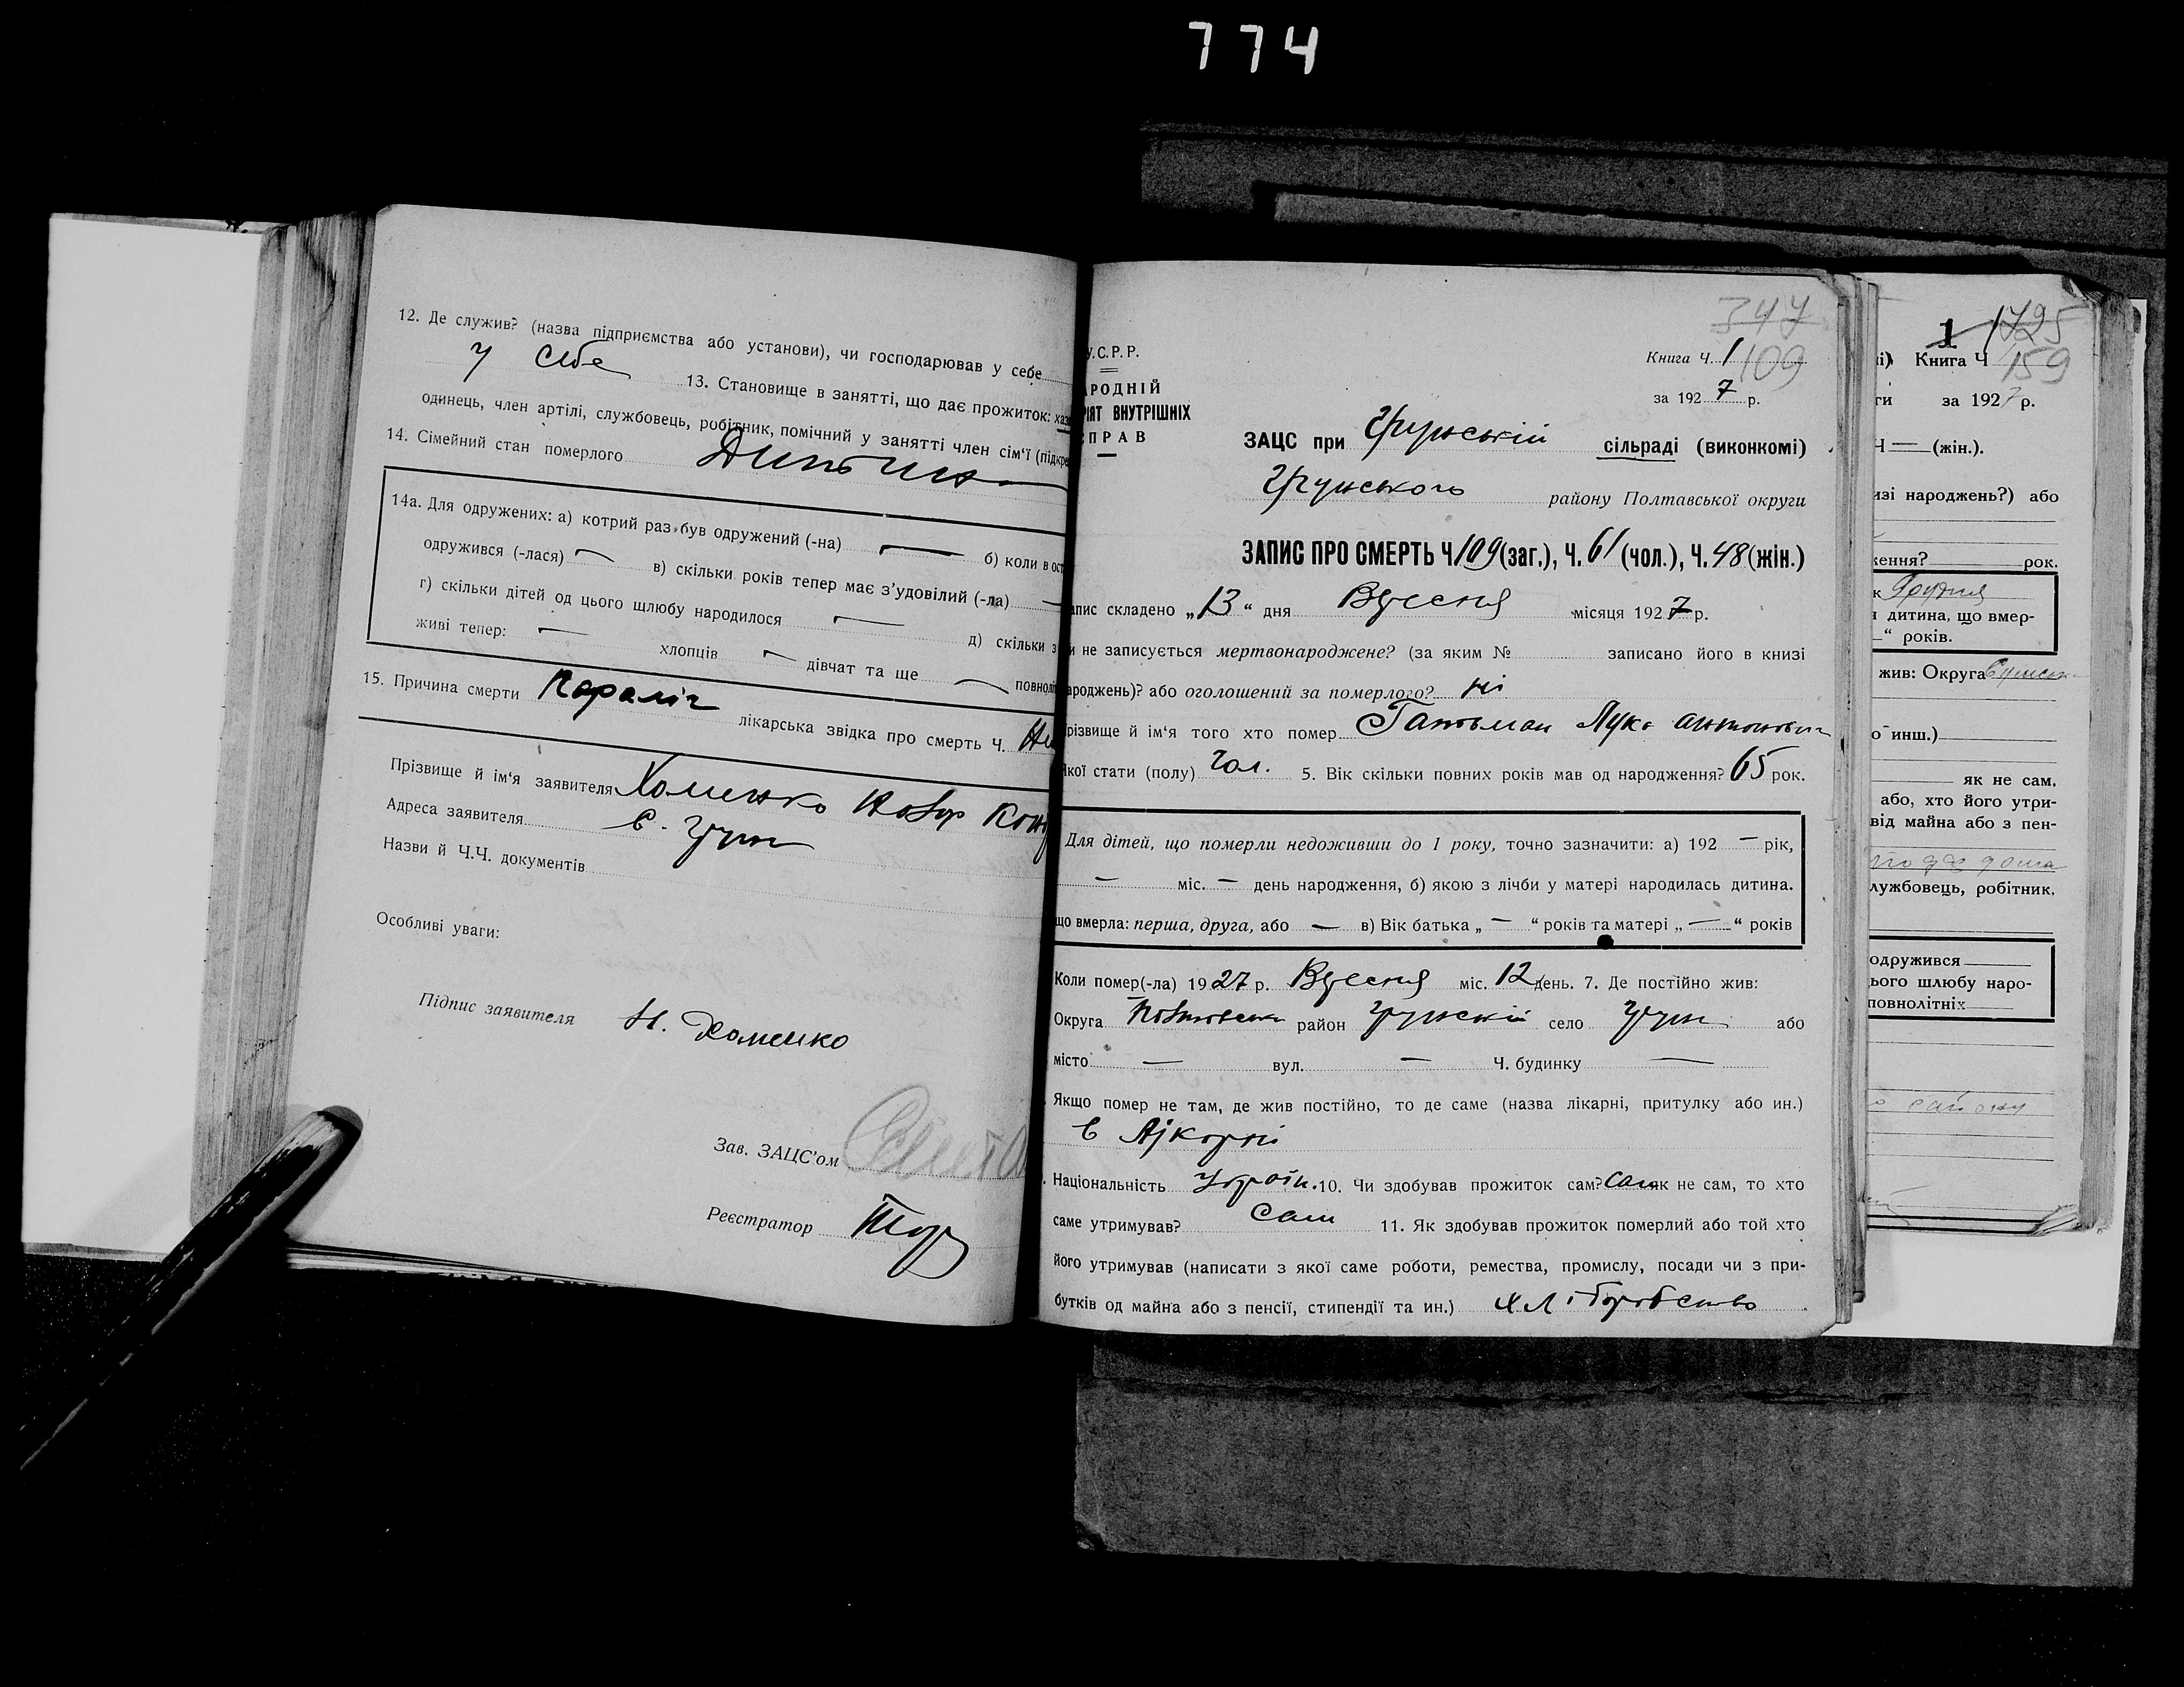 774
12. Де служив? (назва підприємства або установи), чи господарював у себе
у себе 13. Становище в занятті, що дає прожиток: хаз
одинець, член артілі, службовець, робітник, помічний у занятті член сім'ї (підкре
14. Сімейний стан померлого Дитина
14а. Для одружених: а) котрий раз був одружений (-на) — б) коли в ост
одружився (-лася) — в) скільки років тепер має з'удовілий (-ла) —
г) скільки дітей од цього шлюбу народилося — д) скільки з
живі тепер: — хлопців — дівчат та ще — повноліт
15. Причина смерти Параліч лікарська звідка про смерть Ч.
Прізвище й ім'я заявителя Хоменко
Адреса заявителя с. Грунь
Назви й Ч.Ч. документів
Особливі уваги:
Підпис заявителя Н. Хоменко
Зав. ЗАЦС'ом
Реєстратор
У.С.Р.Р.
АРОДНІЙ
РІЯТ ВНУТРІШНІХ
СПРАВ
347
Книга Ч. 1
109
за 1927 р.
ЗАЦС при Грунській сільраді (виконкомі)
Грунського району Полтавської округи
ЗАПИС ПРО СМЕРТЬ Ч. 109 (заг.), Ч. 61 (чол.), Ч. 48 (жін.)
апис складено „13“ дня Вересня місяця 1927 р.
и не записується мертвонароджене? (за яким № записано його в книзі
ароджень)? або оголошений за померлого? ні
різвище й ім'я того хто помер Гальман Лука Антонович
кої стати (полу) Чол. 5. Вік скільки повних років мав од народження? 65 рок.
Для дітей, що померли недоживши до 1 року, точно зазначити: а) 192 — рік,
— міс. — день народження, б) якою з лічби у матері народилась дитина.
що вмерла: перша, друга, або — в) Вік батька „ — “ років та матері „ — “ років
Коли помер(-ла) 1927 р. Вересня міс. 12 день. 7. Де постійно жив:
Округа Полтавська район Грунський село Грунь або
місто — вул. — Ч. будинку —
Якщо помер не там, де жив постійно, то де саме (назва лікарні, притулку або ин.)
Національність Україн. 10. Чи здобував прожиток сам? Сам як не сам, то хто
саме утримував? Сам 11. Як здобував прожиток померлий або той хто
його утримував (написати з якої саме роботи, ремества, промислу, посади чи з при-
бутків од майна або з пенсії, стипендії та ин.) Хліборобство
1 1725
і) Книга Ч 159
ти за 1927 р.
Ч — (жін.).
изі народжень?) або
ження? рок.
к Грудня
я дитина, що вмер-
— “ років.
жив: Округа Сумськ
о инш.)
як не сам,
або, хто його утри-
від майна або з пен-
лужбовець, робітник,
одружився
ього шлюбу наро-
повнолітніх
району